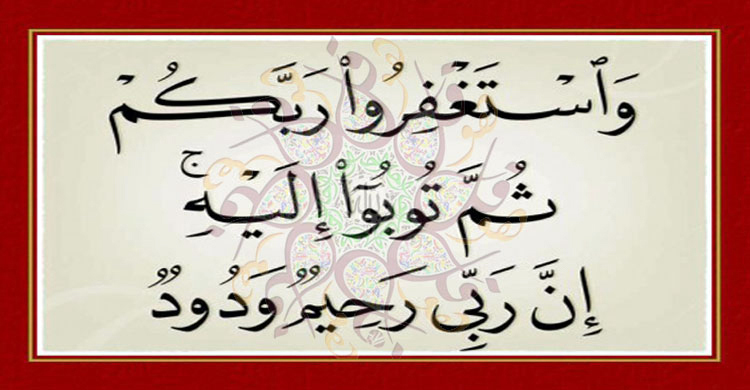 وَٱسْتَغْفِرُوا۟ رَبَّكُمْ
ثُمَّ تُوبُوٓا۟ إِلَيْهِ ۚ
إِنَّ رَبِّى رَحِيمٌ وَدُودٌ